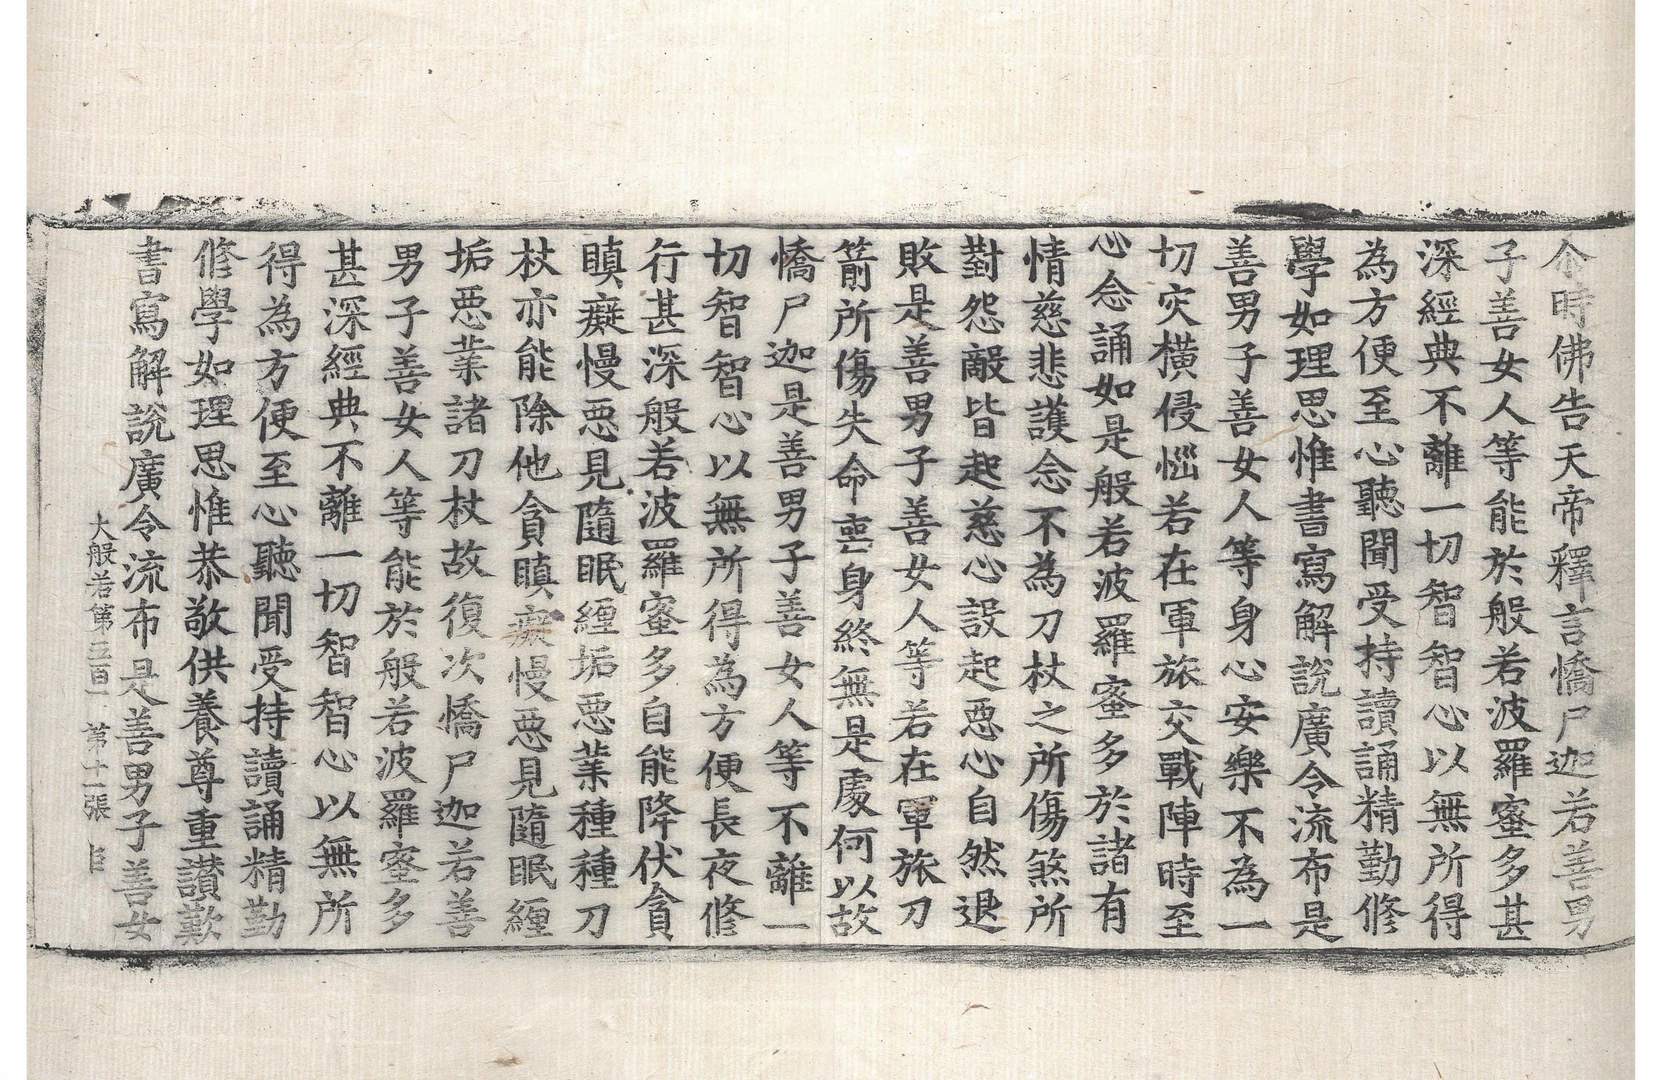 尒時佛告天帝釋言憍尸迦若善男
子善女人等能於般若波羅蜜多甚
深經典不離一切智智心以無所得
為方便至心聽聞受持讀誦精勤修
學如理思惟書寫解說廣令流布是
善男子善女人等身心安樂不為一
切灾橫侵惱若在軍旅交戰陣時至
心念誦如是般若波羅蜜多於諸有
情慈悲護念不為刀杖之所傷煞所
對怨敵皆起慈心設起惡心自然退
敗是善男子善女人等若在軍旅刀
箭所傷失命喪身終無是處何以故
憍尸迦是善男子善女人等不離一
切智智心以無所得為方便長夜修
行甚深般若波羅蜜多自能降伏貪
瞋癡慢惡見隨眠纏垢惡業種種刀
杖亦能除他貪瞋癡慢惡見隨眠纏
垢惡業諸刀杖故復次憍尸迦若善
男子善女人等能於般若波羅蜜多
甚深經典不離一切智智心以無所
得為方便至心聽聞受持讀誦精勤
修學如理思惟恭敬供養尊重讃歎
書寫解說廣令流布是善男子善女
大般若第五百一 第十一張 𡊮